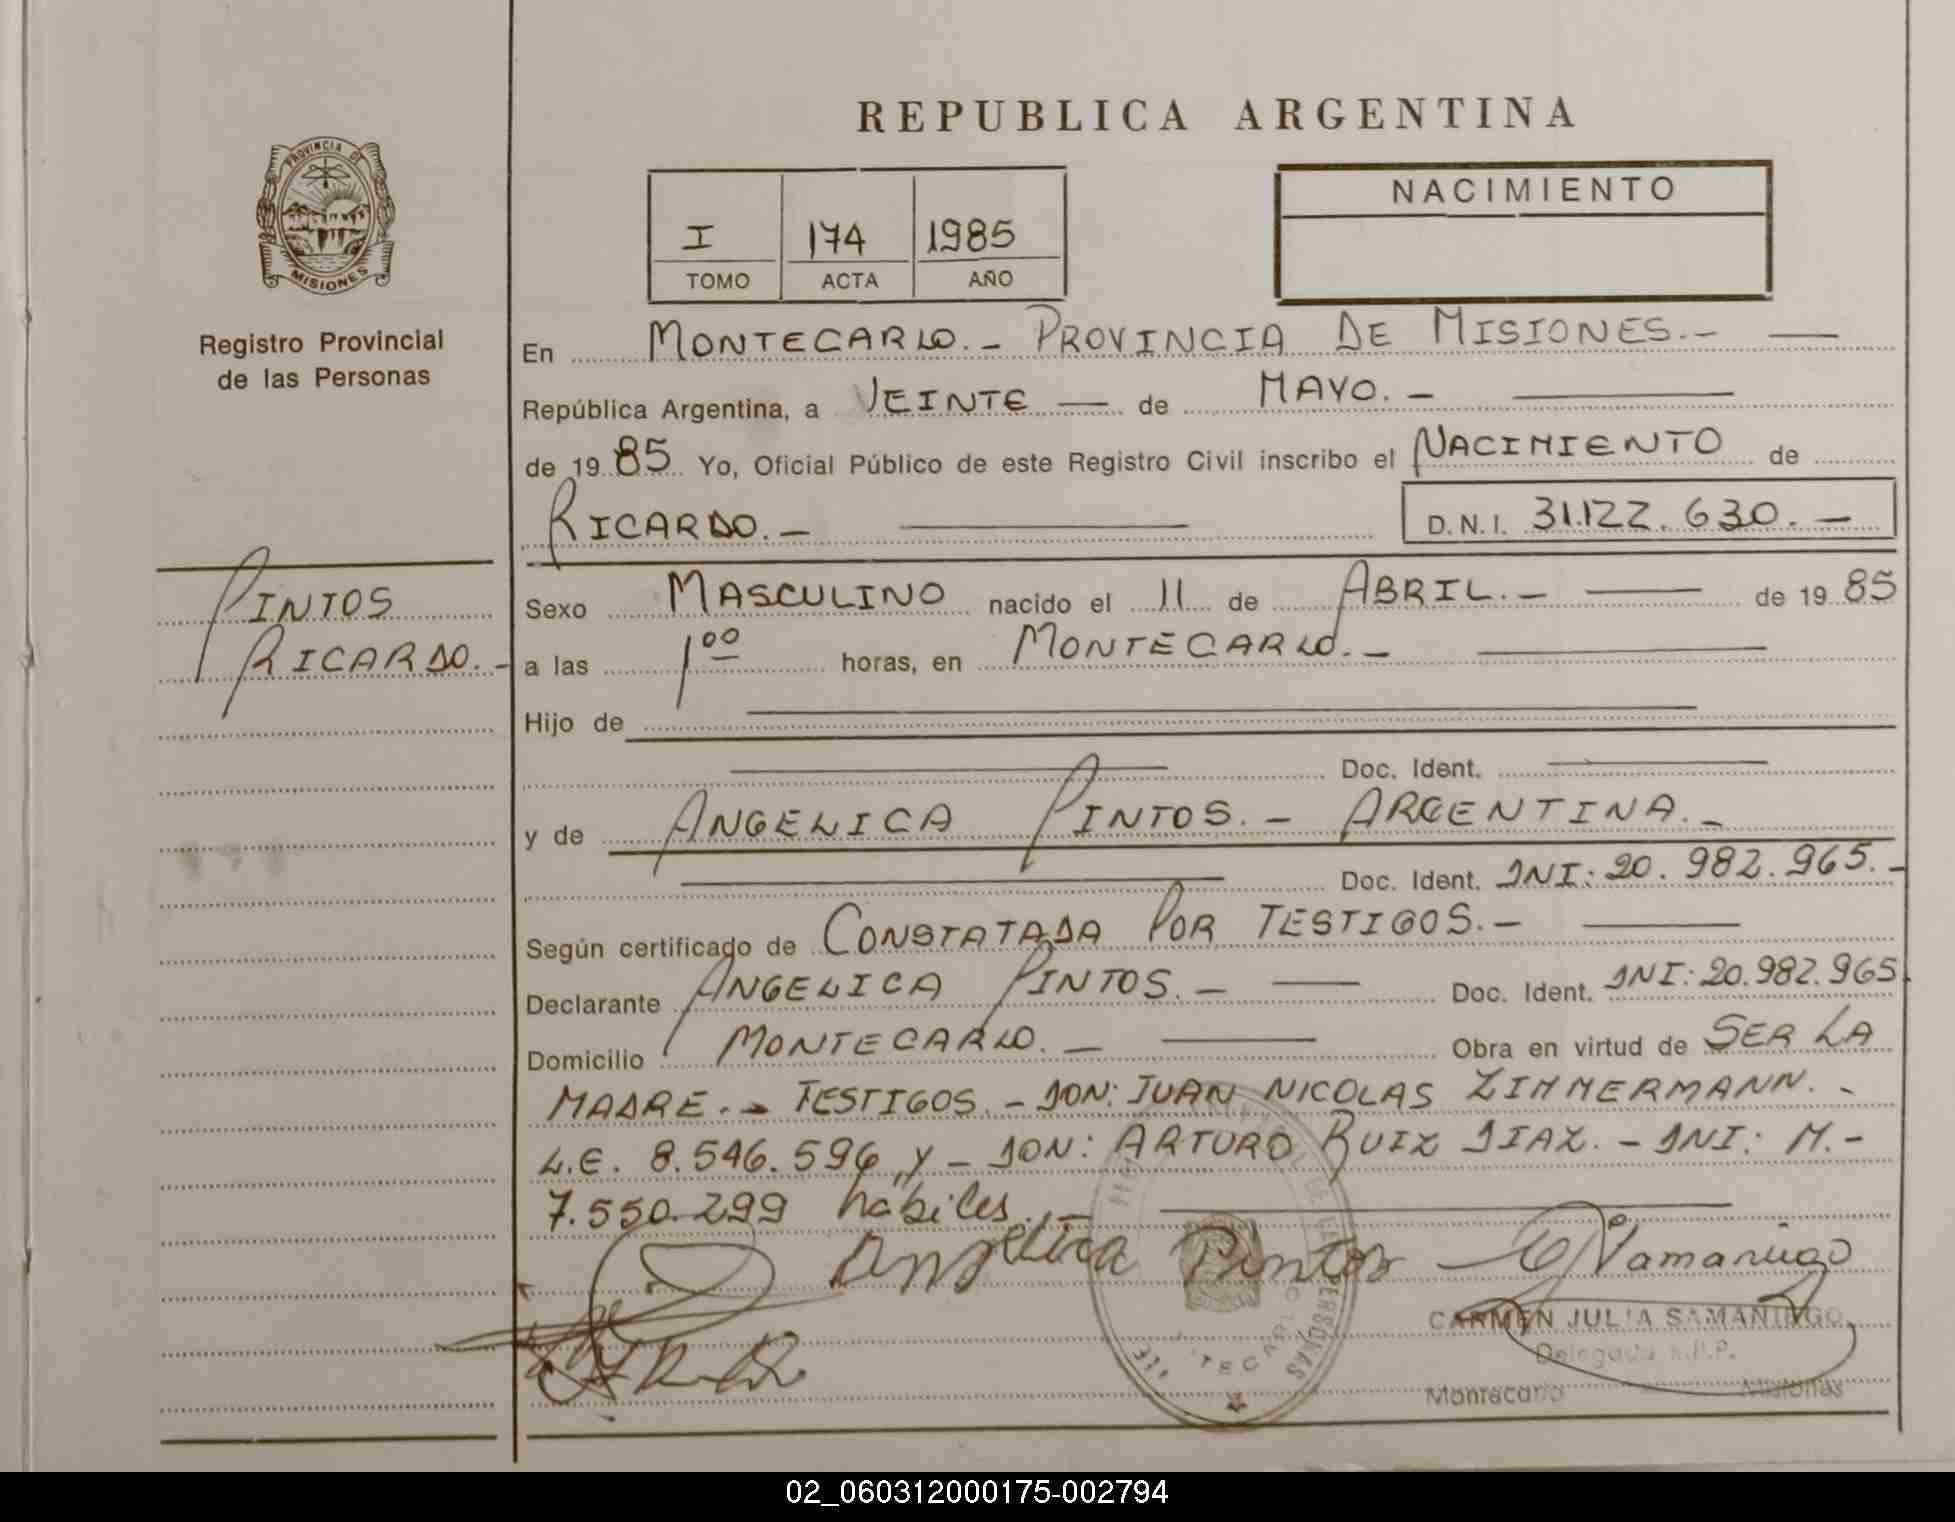 REPUBLICA ARGENTINA
PROVINCIA DE
MISIONES
Registro Provincial
de las Personas
I 174 1985
TOMO ACTA AÑO
NACIMIENTO
En MONTECARLO.- PROVINCIA DE MISIONES.-
República Argentina, a VEINTE de MAYO.-
de 1985 Yo, Oficial Público de este Registro Civil inscribo el NACIMIENTO de
RICARDO.- D.N.I. 31.122.630.-
PINTOS
RICARDO.-
Sexo MASCULINO nacido el 11 de ABRIL.- de 1985
a las 1⁰⁰ horas, en MONTECARLO.-
Hijo de
Doc. Ident.
y de ANGELICA PINTOS.- ARGENTINA.-
Doc. Ident. DNI: 20.982.965.-
Según certificado de CONSTATADA POR TESTIGOS.-
Declarante ANGELICA PINTOS.- Doc. Ident. DNI: 20.982.965
Domicilio MONTECARLO.- Obra en virtud de SER LA
MADRE.- TESTIGOS.- DON: JUAN NICOLAS ZIMMERMANN.-
L.E. 8.546.596, y - DON: ARTURO RUIZ DIAZ.- DNI: M.-
7.550.299 habiles.-
Angelica Pintos
CARMEN JULIA SAMANIEGO
Delegada R.P.P.
Montecarlo Misiones
02_060312000175-002794